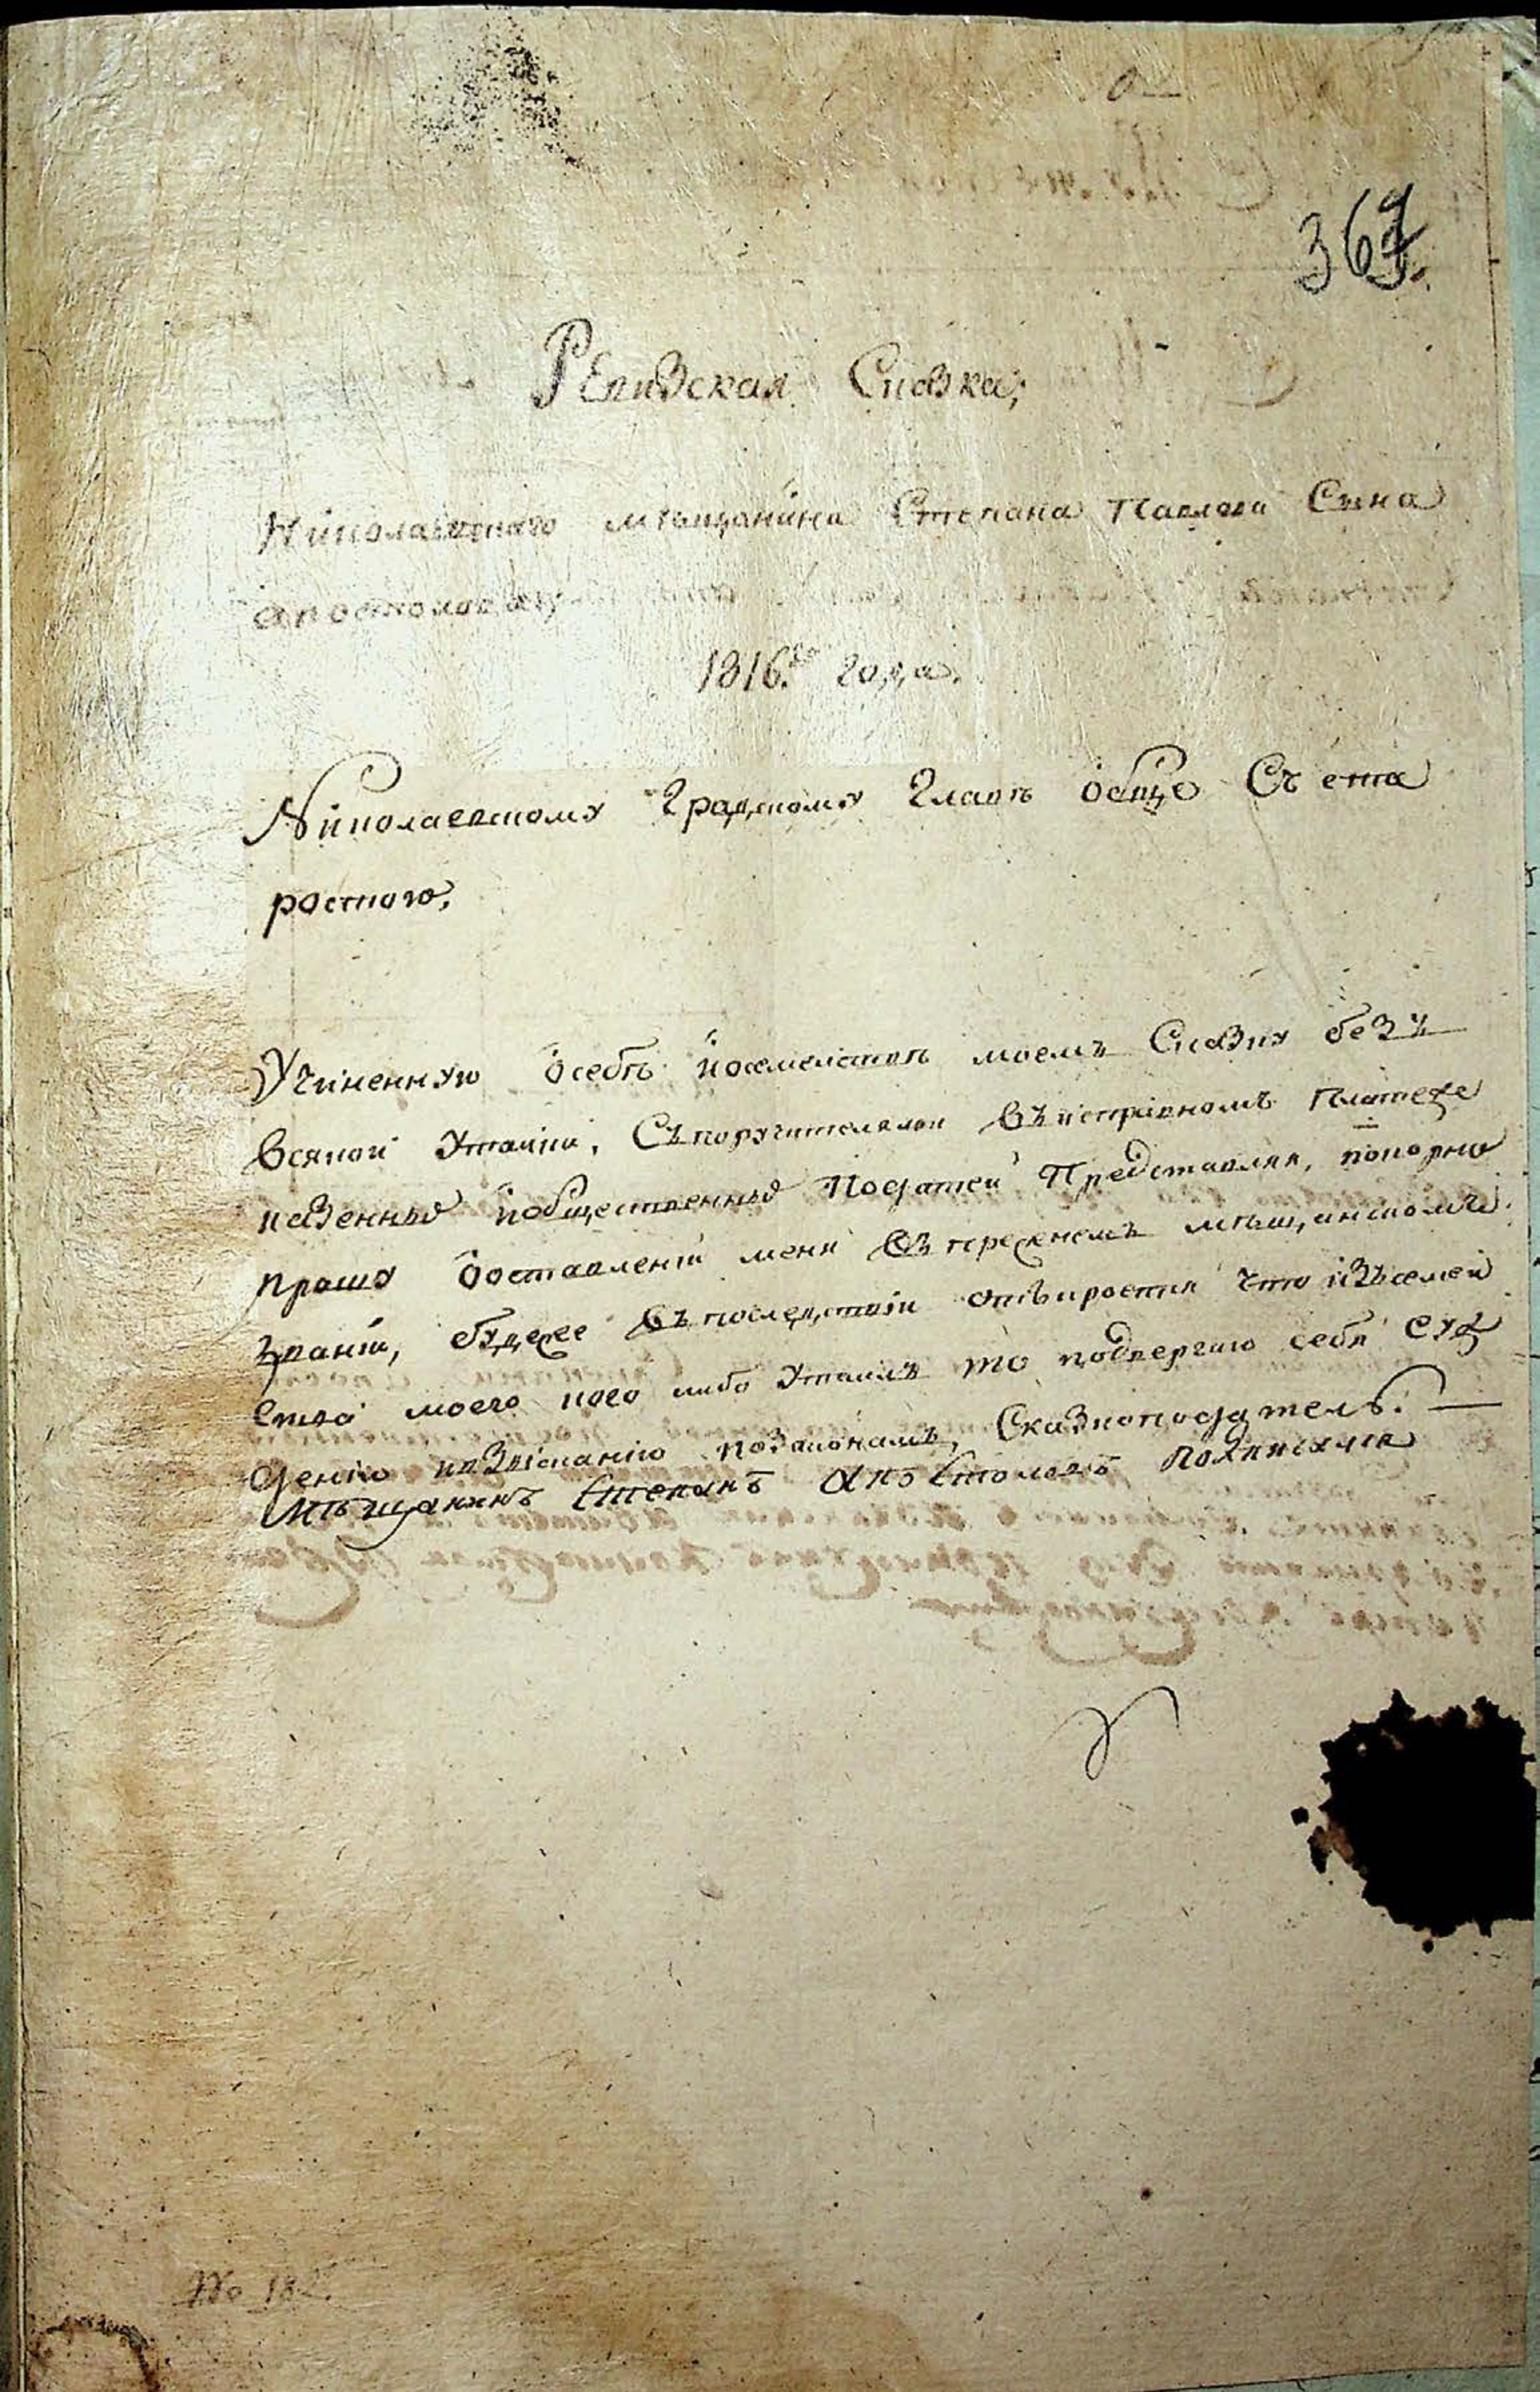 367.
Ревизская Сказка;
Николаевскаго мѣщанина Степана Павлова Сына
апостолова;
1816.го года.
Николаевскому Градскому Главѣ обще Съ ста
ростою,
Учиненную осебѣ исемействѣ моемъ Сказку безъ
всякой утайки, Съпоручителями въисправномъ платеже
казенныхъ иобщественныхъ податей Представляя, покорно
прошу ооставленіи меня въпрежнемъ мѣщанскомъ
званіи, будеже въпоследствіи откыроется что изъсемей
ства моего кого либо утаилъ то подвергаю себя суж
дению ивзысканію позаконамъ, Сказкоподатель:
мѣщанинъ Степанъ Апостоловъ подписался
No 182.